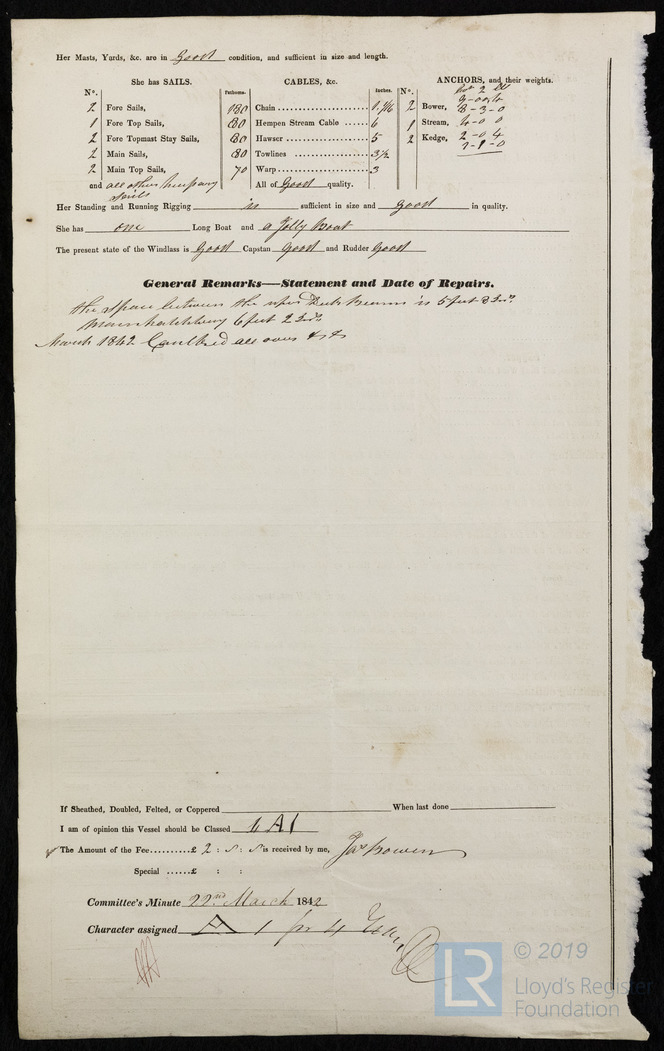 Her Masts, Yards, &c. are in Good condition, and sufficient in size and length.
She has SAILS. CABLES, &c. ANCHORS, and their weights.
N°. Fathoms. Inches. N°.
2 Fore Sails, 180 Chain 1 1/16 2 Bower,
8-3-0
1 Fore Top Sails, 80 Hempen Stream Cable 6 1 Stream,
2 Fore Topmast Stay Sails, 80 Hawser 5 2 Kedge, 2-0-4
2 Main Sails, 80 Towlines 3½
2 Main Top Sails, 70 Warp 3
and all other necessary All of Good quality.
sails
Her Standing and Running Rigging is sufficient in size and Good in quality.
She has one Long Boat and a Jolly Boat
The present state of the Windlass is Good Capstan Good and Rudder Good
General Remarks—Statement and Date of Repairs.
the Space between the upper Deck Beams is 5 feet 3 Ins.
Main hatchway 6 feet 2 Ins.
March 1842 Caulked all over
If Sheathed, Doubled, Felted, or Coppered When last done
I am of opinion this Vessel should be Classed A1
The Amount of the Fee..........£ 2 : : is received by me, Jas Bowen
Special ......£ : :
Committee's Minute 22nd March 1842
Character assigned A 1 for 4 Years
LR © 2019
Lloyd's Register
Foundation